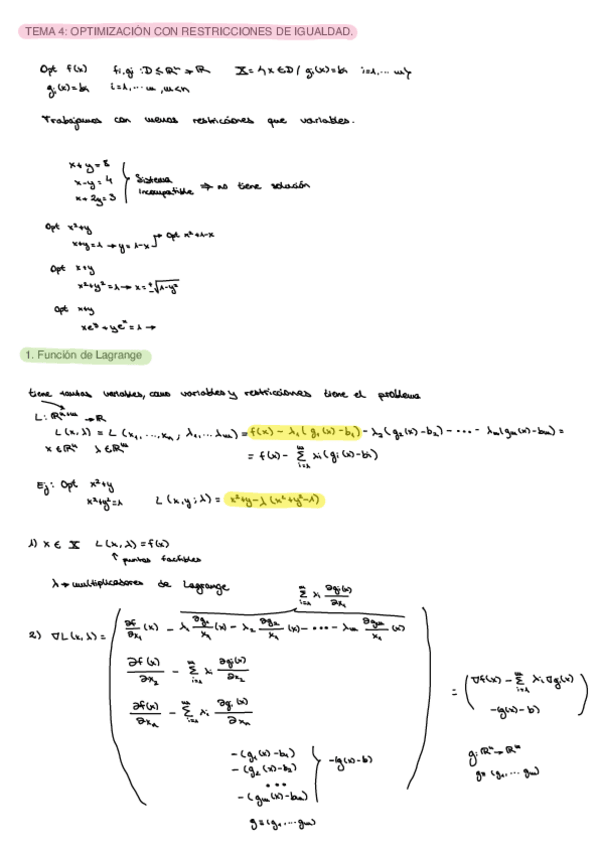 TEMA 4: OPTIMIZACIÓN CON RESTRICCIONES DE IGUALDAD.
Opt f(x) f,gⱼ : D ⊆ ℝⁿ → ℝ X = { x ∈ D / gᵢ(x) = bᵢ i=1,... m }
gᵢ(x) = bᵢ i=1,... m, m<n
Trabajamos con menos restricciones que variables.
x+y=8
x-y=4
x+2y=3
Sistema incompatible ⇒ no tiene solución
Opt x²+y
x+y=1 → y=1-x → Opt x²+1-x
Opt x+y
x²+y²=1 → x=±√1-y²
Opt x+y
xeʸ + yeˣ = 1 →
1. Función de Lagrange
tiene tantas variables, como variables y restricciones tiene el problema
L: ℝⁿ⁺ᵐ → ℝ
L(x,λ) = L(x₁,...,xₙ; λ₁,...λₘ) = f(x) - λ₁(g₁(x)-b₁) - λ₂(g₂(x)-b₂) - ... - λₘ(gₘ(x)-bₘ) =
x ∈ ℝⁿ λ ∈ ℝᵐ = f(x) - Σᵢ₌₁ᵐ λᵢ(gᵢ(x)-bᵢ)
Ej: Opt x²+y
x²+y²=1 L(x,y;λ) = x²+y-λ(x²+y²-1)
1) x ∈ X L(x,λ) = f(x)
↑ puntos factibles
λ → multiplicadores de Lagrange
Σᵢ₌₁ᵐ λᵢ ∂gᵢ(x)/∂x₁
2) ∇L(x,λ) = ( ∂f/∂x₁ (x) - λ₁ ∂g₁/x₁ (x) - λ₂ ∂g₂/x₁ (x) - ... - λₘ ∂gₘ/x₁ (x)
∂f(x)/∂x₂ - Σᵢ₌₁ᵐ λᵢ ∂gᵢ(x)/∂x₂
∂f(x)/∂xₙ - Σᵢ₌₁ᵐ λᵢ ∂gᵢ(x)/∂xₙ
-(g₁(x)-b₁)
-(g₂(x)-b₂)
...
-(gₘ(x)-bₘ) ) } -(g(x)-b)
g=(g₁,...gₘ)
= ( ∇f(x) - Σᵢ₌₁ᵐ λᵢ∇g(x)
-(g(x)-b) )
g: ℝⁿ → ℝᵐ
g=(g₁,... gₘ)